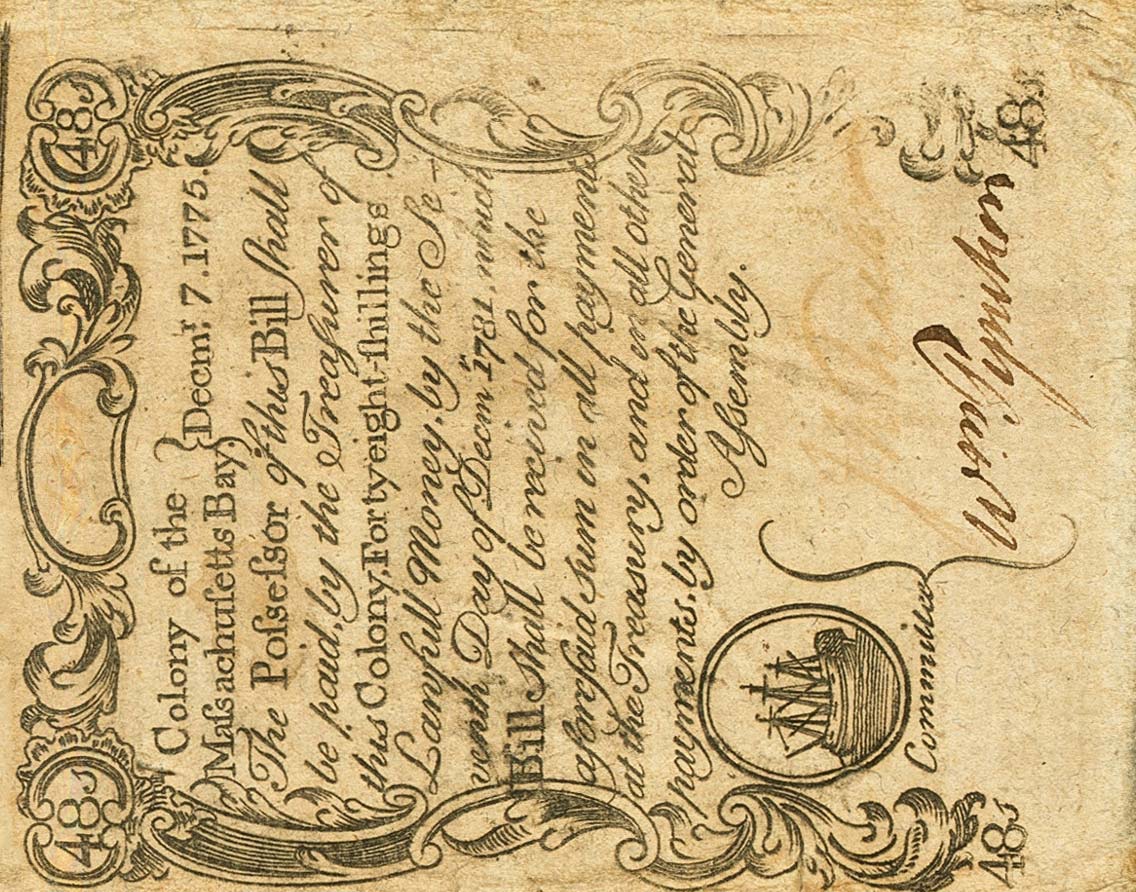 48s 48s
Colony of the
Maſsachuſetts Bay } Decm.r 7. 1775.
The Poſseſsor of this Bill ſhall
be paid, by the Treaſurer of
this Colony, Forty eight ſhillings
Lawfull Money, by the Se-
venth Day of Decm.r 1781, which
Bill shall be received for the
aforeſaid sum in all payments
at the Treasury, and in all other
payments, by order of the General
Aſsembly.
Committee
48s 48s